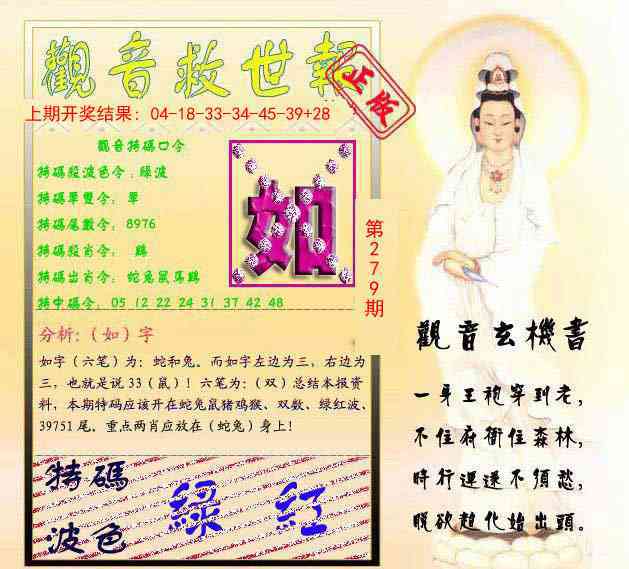 觀音救世報
正版
上期开奖结果：04-18-33-34-45-39+28
觀音特碼口令
特碼殺波色令：綠波
特碼單雙令： 單
特碼尾數令：8976
特碼殺肖令： 鷄
特碼出肖令： 蛇兔鼠馬鷄
特中碼令：05 12 22 24 31 37 42 48
如
第279期
分析：（如）字
如字（六笔）为：蛇和兔。而如字左边为三，右边为
三，也就是说 33（鼠）！六笔为：（双）总结本报资
料，本期特码应该开在蛇兔鼠猪鸡猴、双数、绿红波、
39751 尾。重点两肖应放在（蛇兔）身上！
特碼
波色
綠 紅
觀音玄機書
一身王袍穿到老，
不住府衙住森林，
時行運遂不須愁，
脫欲超化始出頭。